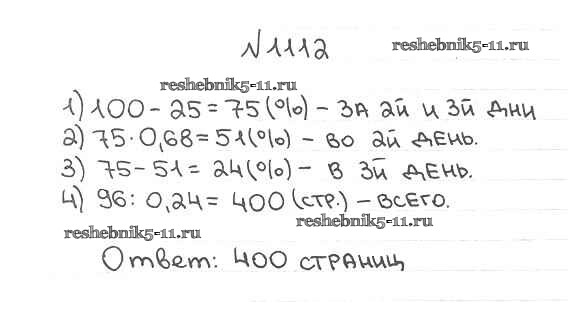 №1112
reshebnik5-11.ru
reshebnik5-11.ru
1) 100 - 25 = 75 (%) - ЗА 2Й И 3Й ДНИ
2) 75 · 0,68 = 51 (%) - ВО 2Й ДЕНЬ.
3) 75 - 51 = 24 (%) - В 3Й ДЕНЬ.
4) 96 : 0,24 = 400 (СТР.) - ВСЕГО.
reshebnik5-11.ru
reshebnik5-11.ru
Ответ: 400 СТРАНИЦ